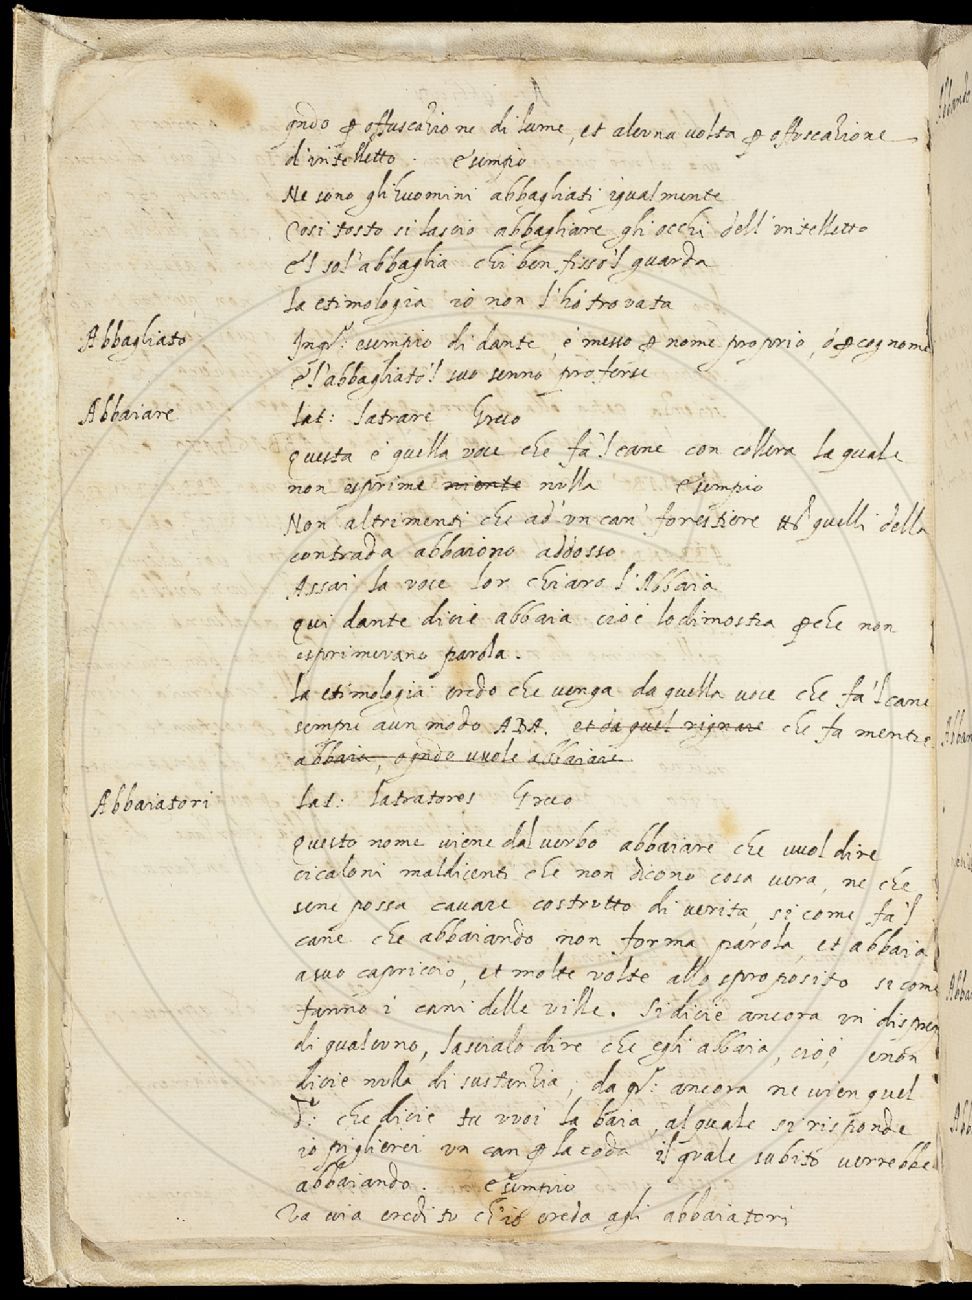 qndo p offuscatione di lume, et alcuna volta p offuscatione
d'intelletto. Esempio
Ne sono gli huomini abbagliati igualmente
Cosi tosto si lascio abbagliare gli occhi dell'intelletto
E'l sol' abbaglia chi ben fisso'l guarda
La etimologia io non l'hò trovata
Abbagliato
esempio di dante, è messo p nome proprio, ò p cognome
E l'abbagliato'l suo senno proferse
Abbaiare
Lat: latrare Greco
Questa è quella voce che fa'l cane con collera la quale
non esprime niente nulla Esempio
Non altrimenti che ad' un can' forestiere quelli della
contrada abbaiono addosso
Assai la voce lor chiaro l'Abbaia
qui dante dicie abbaia cioè lo dimostra pche non
esprimevano parola.
La etimologia credo che venga da quella voce che fa'l cane
sempre a un modo ABA. et da quel rignare che fa mentre
abbaia, o qndo vuole abbaiare
Abbaiatori
Lat: latratores Greco
Questo nome viene dal verbo abbaiare che vuol dire
cicaloni maldicenti che non dicono cosa vera, ne che
sene possa cavare costrutto di verita, si come fa'l
cane che abbaiando non forma parola, et abbaia
a suo capriccio, et molte volte allo sproposito si come
fanno i cani delle ville. Si dicie ancora in
di qualcuno, lascialo dire che egli abbaia, cioè, e non
dicie nulla di sustanzia, da ancora ne vien quel
che dicie tu vuoi la baia, al quale si risponde
io piglierei un can p la coda il quale subito verrebbe
abbaiando. Esempio
Va via credi tu ch'io creda agli abbaiatori